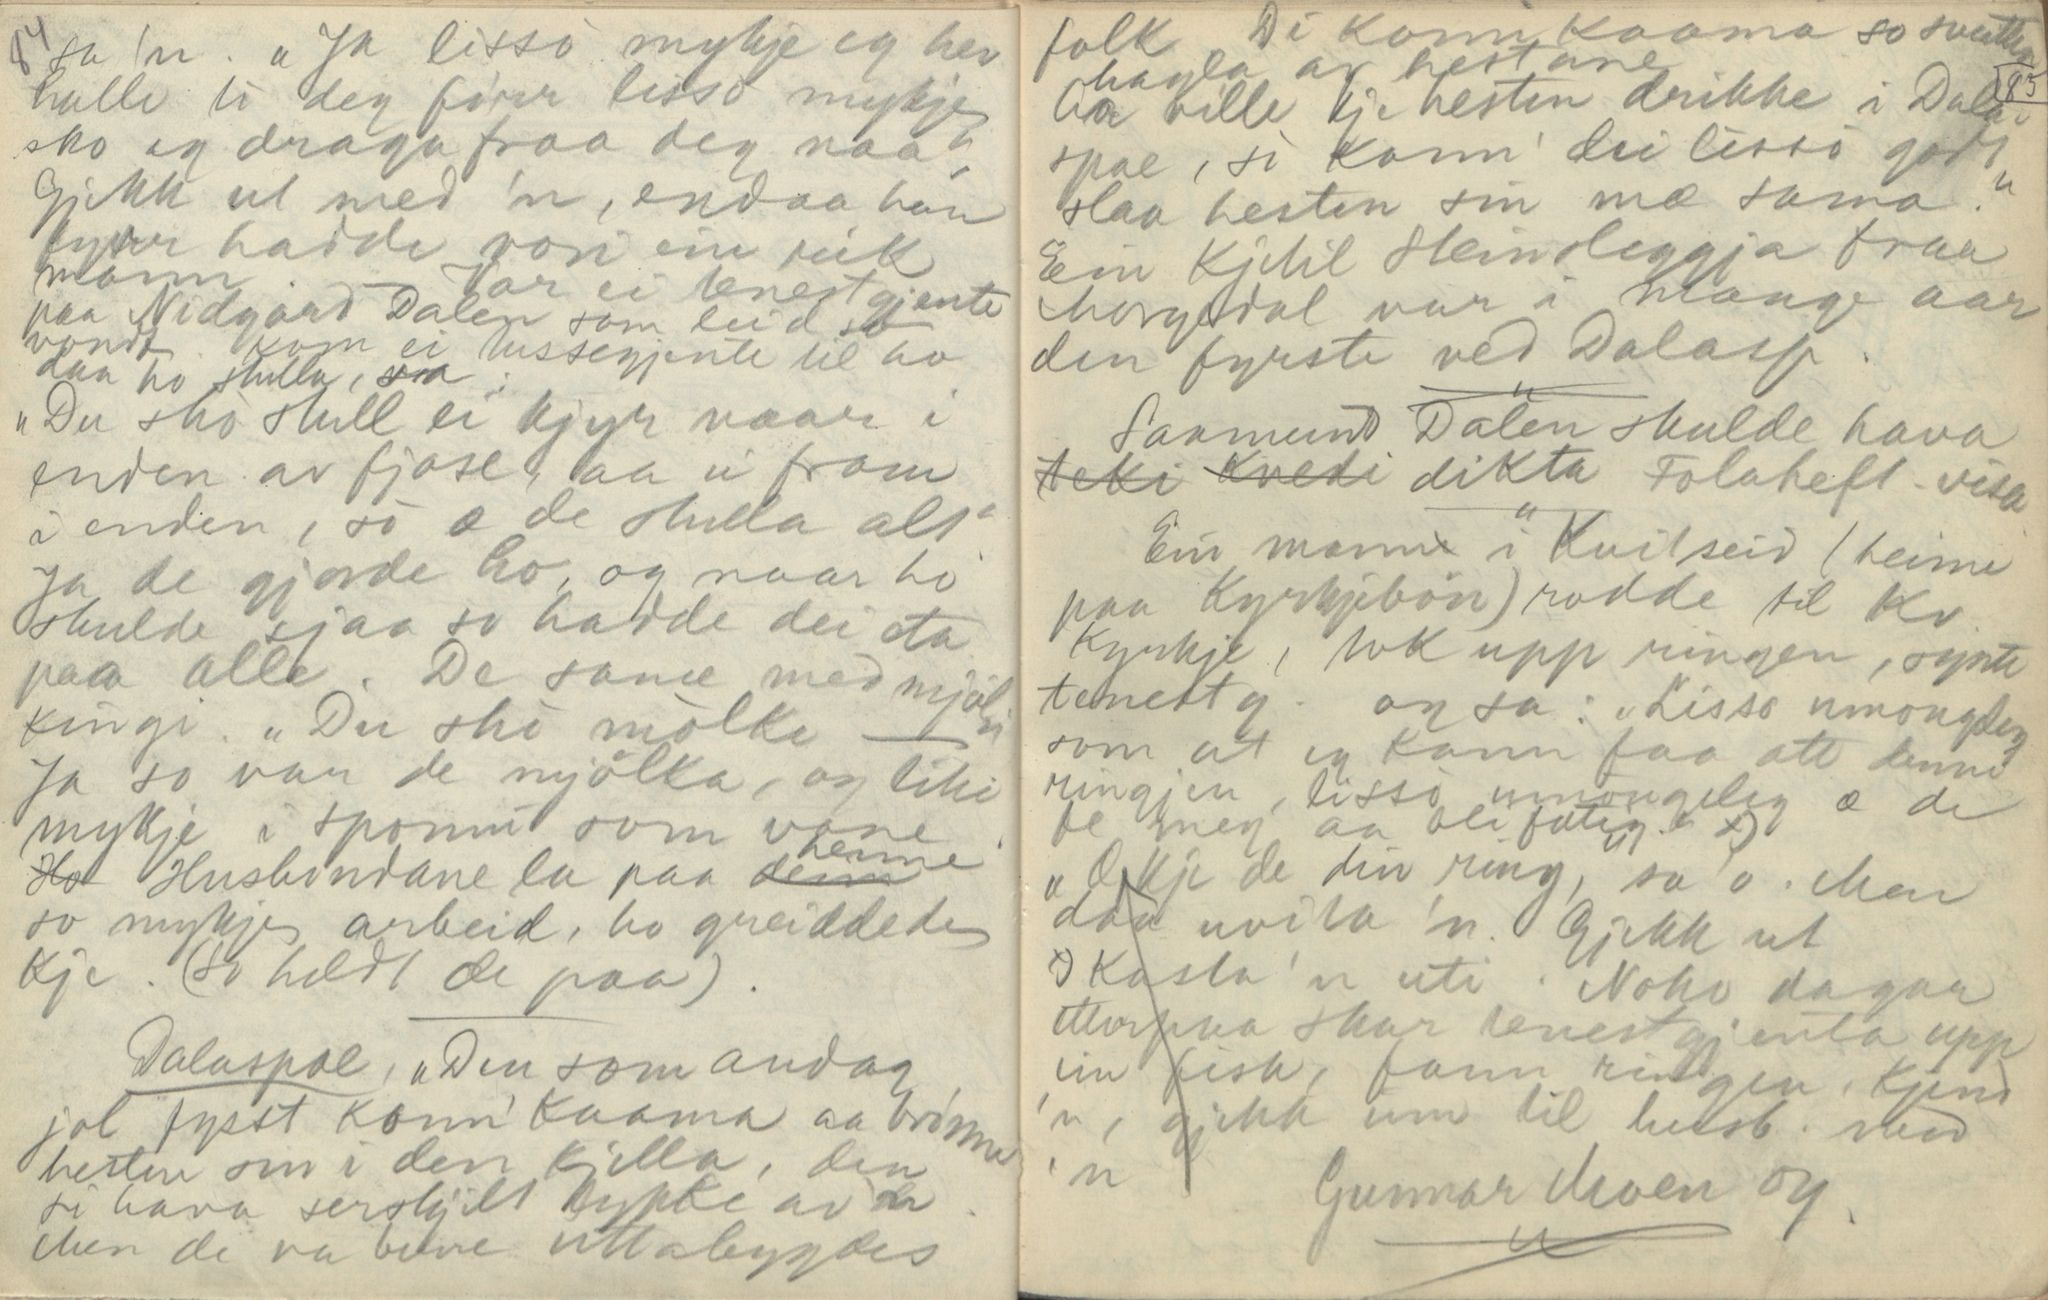 84
sa 'n. "Ja lissò mykje eg hev
halle ti deg fòrr lissò mykje
sko eg draga fraa deg naa".
Gjekk ut med 'n, endaa han
fyrr hadde vori ein rik
mann. Var ei tenestgjente
paa Nidgård Dalen som leid so
vondt. Kom ei tussegjente til ho
daa ho stulla, sa:
"Du sko stull ei kjyr naar i
enden av fjose, aa ei fram
i enden, sò æ de stulla alt"
Ja de gjorde ho, og naar ho
skulde sjaa so hadde dei eta
paa alle. De same med mjølk-
ingi. "Du sko mòlke
Ja so var de mjölka, og like
mykje i sponni som vane.
Ho Husbondane la paa denne henne
so mykje arbeid, ho greiddede
kje. (So heldt de paa).
Dalaspæl, "Den som andag
jol fysst konn' kaama aa brònne
hesten sin i den kjella, den
si hava serskjilt lykke av 'n.
Men de va bere uttabygdes
85
folk Di konn kaama so sveitten
hagla av hestane
Aa ville kje hesten drikke i Dala-
spæl, sò konn' dei lissò godt
slaa hesten sin mæ sama."
Ein Kjetil Steinsleggja fraa
Morgedal var i mange aar
den fyrste ved Dalasp.
Saamund Dalen skulde hava
teki kvedi dikta Folaheft-visa
Ein mann i Kvitseid (heime
paa Kyrkjebøn) rodde til Kv.
Kyrkje, tok upp ringen, synte
tenestg. og sa: "Lisso umongeleg
som at eg kann faa att denne
ringjen, lissò umongeleg æ de
fe meg aa bli fatig." x)
"Æ kje de din ring, sa 'o. Men
daa uvita 'n. Gjekk ut
x) Kasta 'n uti. Noko dagar
etterpaa skar tenestgjenta upp
ein fisk, fann ringen, kjend
'n, gjekk inn til husb. med
'n
Gunnar Moen og.